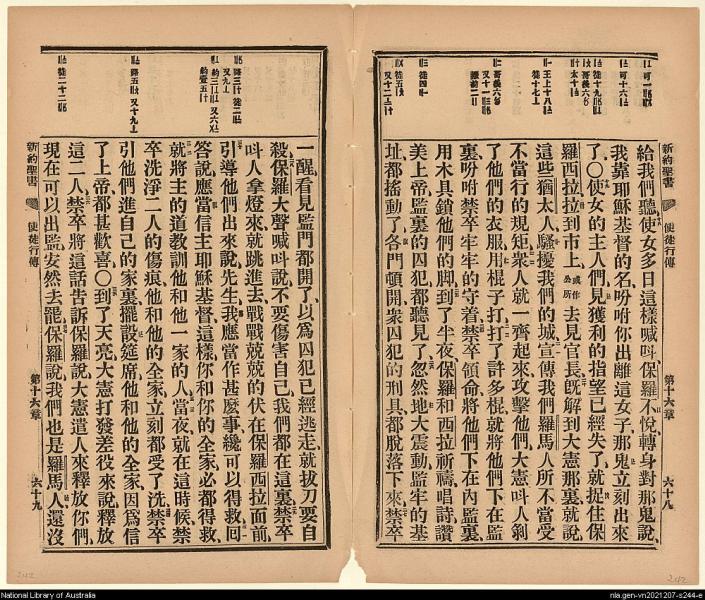 新約聖書
使徒行傳
第十六章
六十八
給我們聽使女多日這樣喊呌保羅不悅轉身對那鬼說
我靠耶穌基督的名吩咐你出離這女子那鬼立刻出來
了〇使女的主人們見獲利的指望已經失了就捉住保
羅西拉拉到市上或作公所去見官長旣解到大憲那裏就說
這些猶太人騷擾我們的城宣傳我們羅馬人所不當受
不當行的規矩衆人就一齊起來攻擊他們大憲呌人剝
了他們的衣服用棍子打打了許多棍就將他們下在監
裏吩咐禁卒牢牢的守着禁卒領命將他們下在內監裏
用木具鎖他們的脚到了半夜保羅和西拉祈禱唱詩讚
美上帝監裏的囚犯都聽見了忽然地大震動監牢的基
址都搖動了各門頓開衆囚犯的刑具都脫落下來禁卒
一醒看見監門都開了以爲囚犯已經逃走就拔刀要自
殺保羅大聲喊呌說不要傷害自己我們都在這裏禁卒
呌人拿燈來就跳進去戰戰兢兢的伏在保羅西拉面前
引導他們出來說先生我應當作甚麼事纔可以得救回
答說應當信主耶穌基督這樣你和你的全家必都得救
就將主的道教訓他和他一家的人當夜就在這時候禁
卒洗淨二人的傷痕他和他的全家立刻都受了洗禁卒
引他們進自己的家裏擺設筵席他和他的全家因爲信
了上帝都甚歡喜〇到了天亮大憲打發差役來說釋放
這二人禁卒將這話告訴保羅說大憲遣人來釋放你們
現在可以出監安然去罷保羅說我們也是羅馬人還沒
新約聖書
使徒行傳
第十六章
六十九
National Library of Australia
nla.gen-vn2021207-s244-e